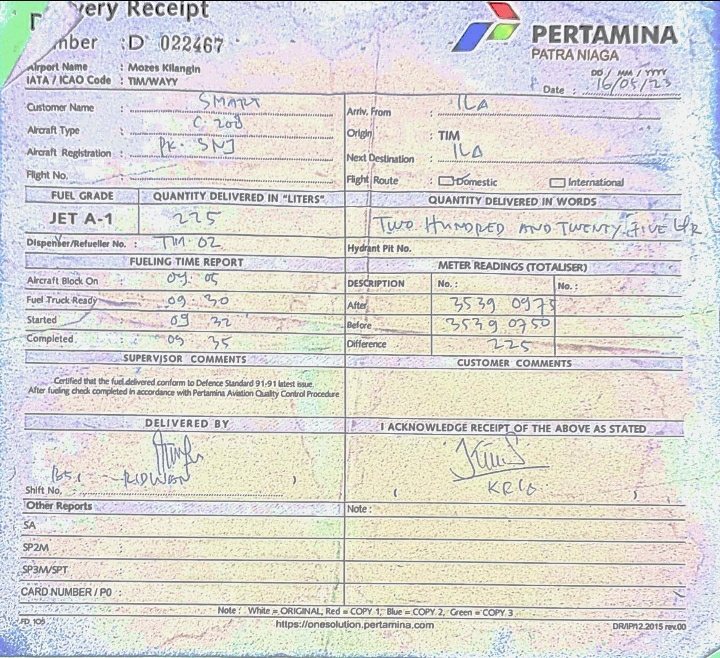 very Receipt
mber : D 022467
PERTAMINA
PATRA NIAGA
Airport Name : Mozes Kilangin
IATA / ICAO Code : TIM/WAYY
DD / MM / YYYY
Date : 16/05/23
Customer Name : SMART
Arriv. From : ILA
Aircraft Type : C 208
Origin : TIM
Aircraft Registration : PK. SNJ
Next Destination : ILA
Flight No. :
Flight Route : Domestic International
FUEL GRADE QUANTITY DELIVERED IN "LITERS" QUANTITY DELIVERED IN WORDS
JET A-1 225 TWO HUNDRED AND TWENTY FIVE LTR
Dispenser/Refueller No. : TIM 02 Hydrant Pit No.
FUELING TIME REPORT METER READINGS (TOTALISER)
Aircraft Block On : 09. 05 DESCRIPTION No. : No. :
Fuel Truck Ready : 09 30 After 3539 0975
Started : 09 32 Before 3539 0750
Completed : 09 35 Difference 225
SUPERVISOR COMMENTS CUSTOMER COMMENTS
Certified that the fuel delivered conform to Defence Standard 91-91 latest issue.
After fueling check completed in accordance with Pertamina Aviation Quality Control Procedure
DELIVERED BY I ACKNOWLEDGE RECEIPT OF THE ABOVE AS STATED
RIDWAN
Shift No,
Other Reports Note :
SA
SP2M
SP3M/SPT
CARD NUMBER / PO :
Note : White = ORIGINAL, Red = COPY 1, Blue = COPY 2, Green = COPY 3
FD_105 https://onesolution.pertamina.com DR/IP/12.2015 rev.00